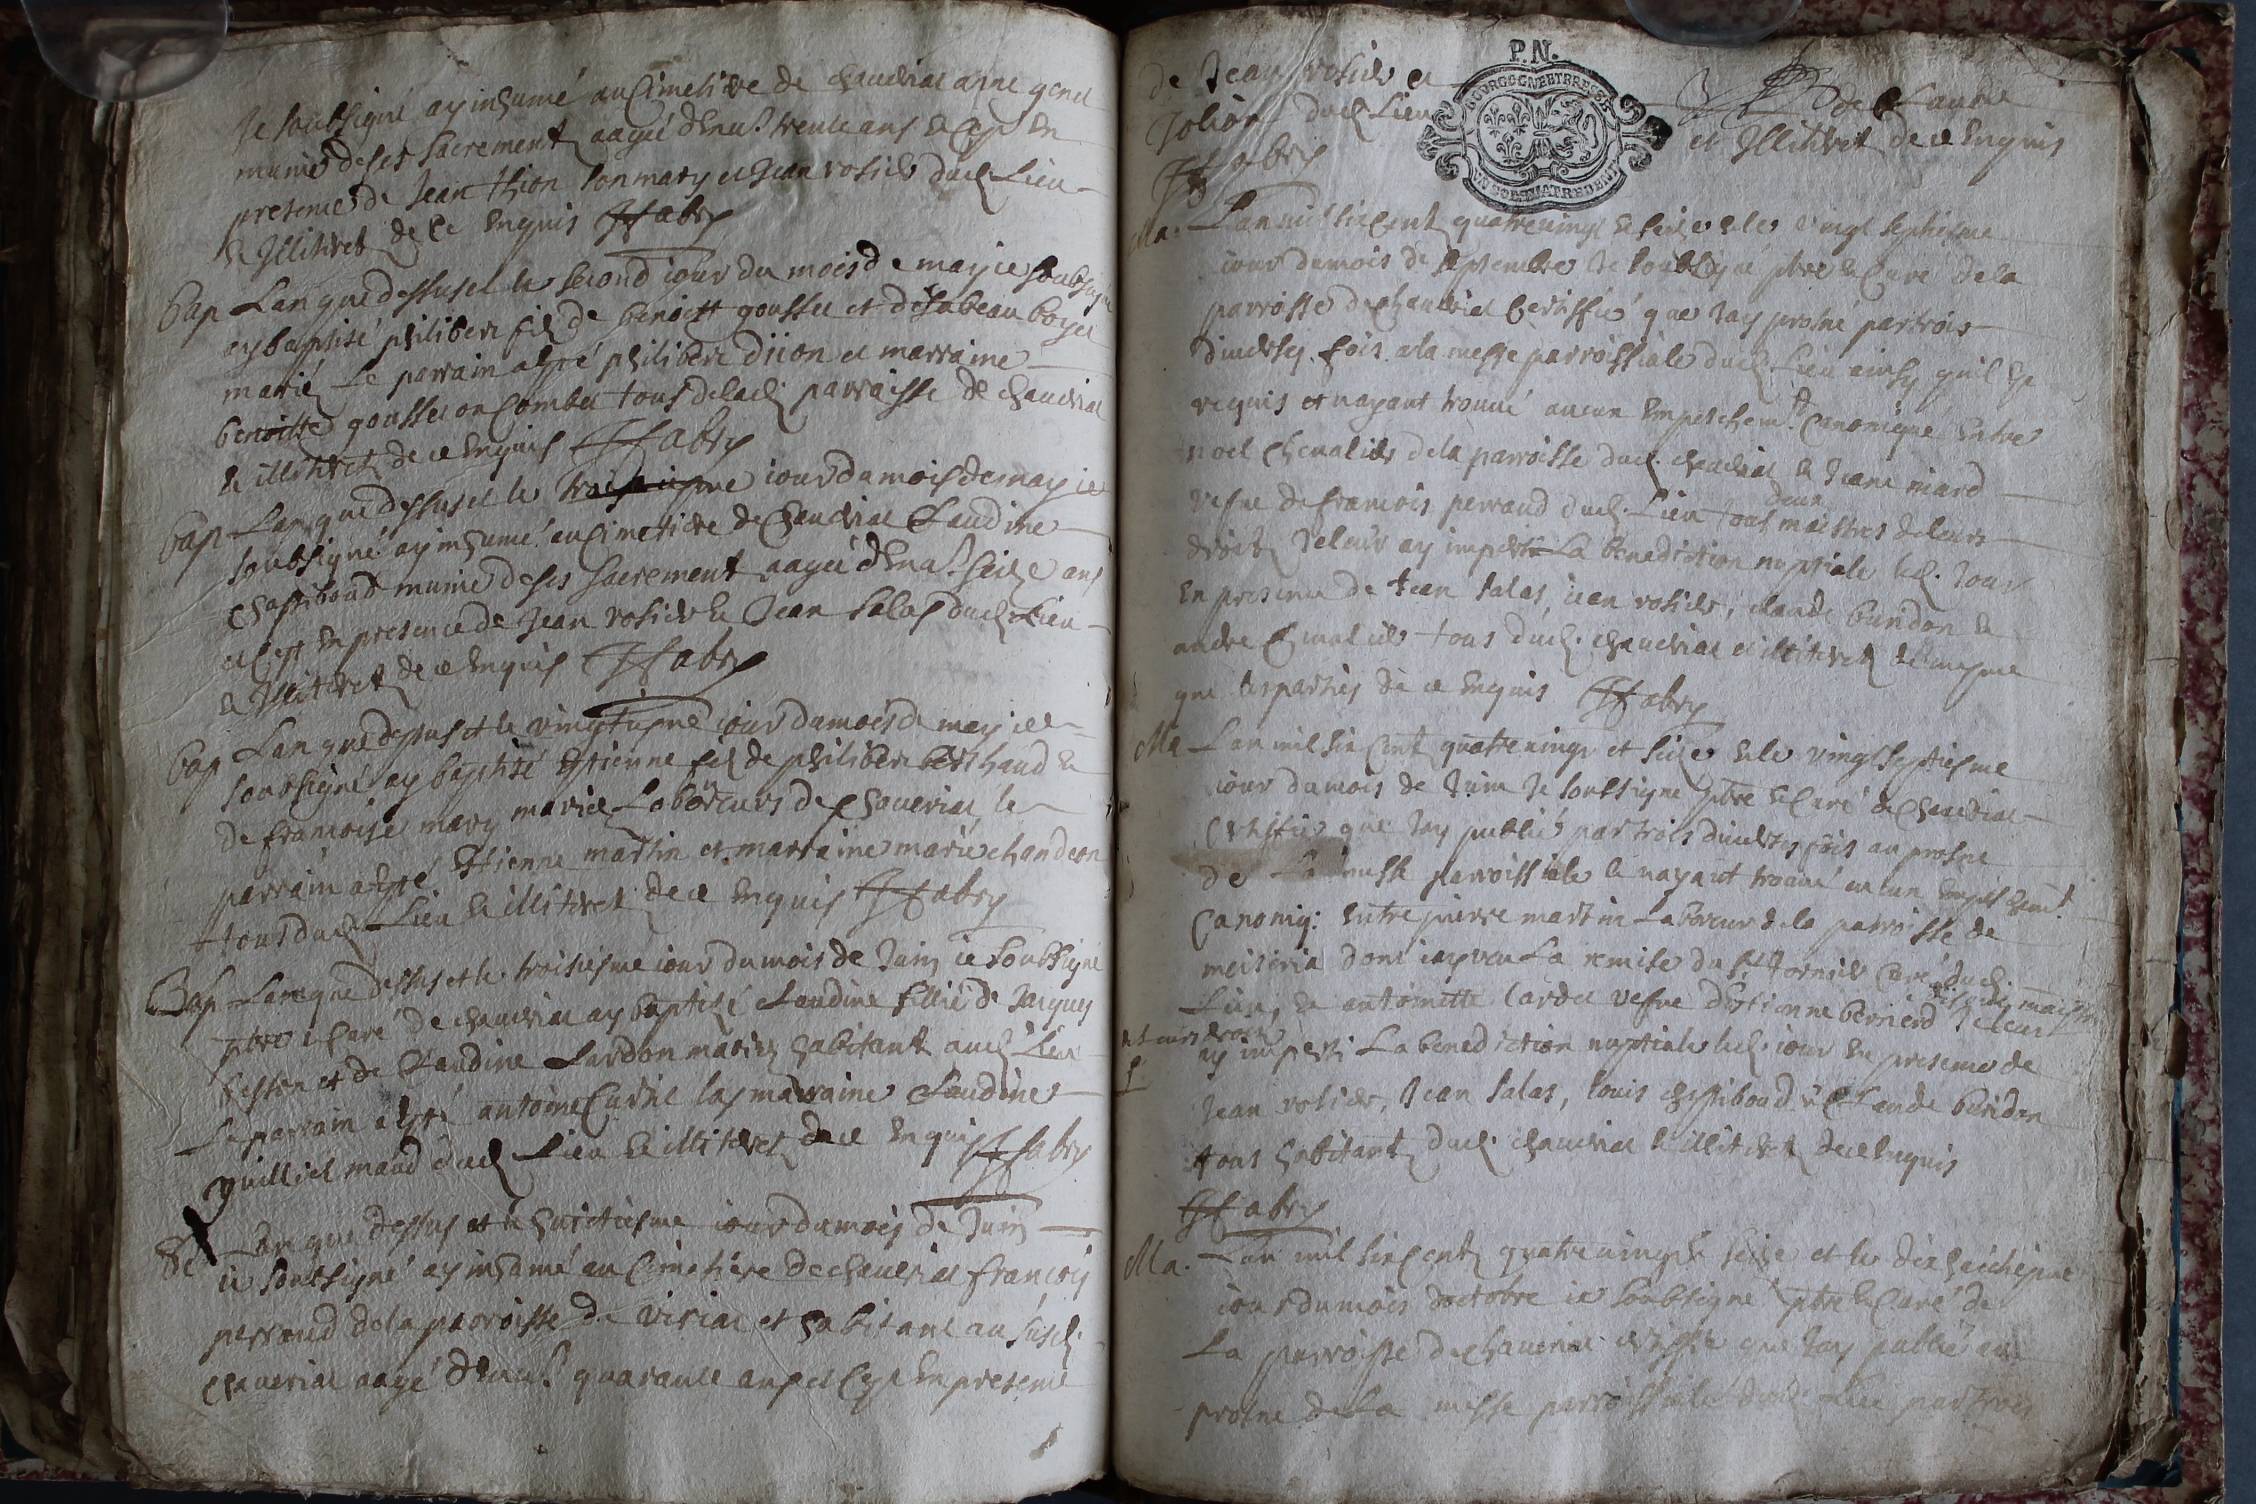 Je soubsigné ay inhumé au Cimetiere de chaveriat anne genet
munie de ses sacrement aagée d'env. trente ans et ce en
presence de Jean thion son mary et Jean rosier dud. Lieu
et Illitret de ce Enquis JFabry
Bap L'an que dessus et le second iour du mois de may ie soubsigné
ay baptisé philibert fils de benoist gousset et d'isabeau boyer
mariez le parrain a esté philibert diion et marraine
benoiste gousset on Combet tous de lad. parroisse de chaveriat
et illitret de ce Enquis JFabry
bap L'an que dessus et le troisiesme iour du mois de may ie
soubsigné ay inhumé au Cimetiere de Chaveriat Claudine
Chassiboud munie de ses sacrement aagée d'env. seize ans
et ce en presence de Jean rosier et Jean salas dud. Lieu
et Illitret de ce Enquis JFabry
bap L'an que dessus et le vingtiesme iour du mois de may ie
soubsigné ay baptisé Estienne fils de philibert berthaud et
de françoise mary mariez Laboureurs de Chaveriat le
parrain a esté Estienne martin et marraine marie chandeon
tous dud. Lieu et illitret de ce Enquis JFabry
Bap L'an que dessus et le troisiesme iour du mois de Juin ie soubsigné
pbre et Curé de chaveriat ay baptizé Claudine fillie de Jacques
besson et de Claudine Lardon mariez habitant aud. Lieu
Le parrain a esté antoine la marraine Claudine
maud dud. Lieu et illitret de ce Enquis JFabry
L'an que dessus et le huictiesme iour du mois de Juin
ie soubsigné ay inhumé au Cimetiere de chaveriat françois
perraud de la parroisse de viriat et habitant au susd.
Chaveriat aagé d'env. quarante ans et ce en presence
de Jean rosier et de Claude
Jolion dud. Lieu et Illitret de ce Enquis
JFabry
P.N.
Ma. L'an mil six Cent quatre vingt et seize et le vingt septiesme
iour du mois de septembre Je soubsigné pbre et Curé de la
parroisse de Chaveriat Certiffie que Jay prosné par trois
diverses fois a la messe parroissiale dud. Lieu ainsy quil est
requis et nayant trouvé aucun Empeschemt. Canonique Entre
noel Chevalier de la parroisse dud. chaveriat et Jeane niard
vefve de francois perraud dud. Lieu tous deux maistres de leurs
droits Je leur ay imparti La benediction nuptiale led. Jour
En presence de Jean salas, iean rosier, claude buridon et
andre Chevalier tous dud. chaveriat et illitret de mesme
que les parties de ce Enquis JFabry
Ma L'an mil six Cent quatre vingt et seize et le vingt septiesme
iour du mois de Juin Je soubsigne pbre et Curé de Chaveriat
Certifie que Jay publié par trois diverses fois au prosne
de La messe parroissiale et nayant trouvé aucun
Canoniq: Entre pierre martin Laboreur de la parroisse de
meiseria dont iay veu La remise du Sr. Curé dud.
Lieu, et antoinette Cardet vefve d'Estienne bernerd Je leur
maistres de leurs droits
ay imparti La benediction nuptiale led. iour En presence de
Jean rosier, Jean salas, louis Chassiboud et Claude buridon
tous habitant dud. chaveriat et illitret de ce Enquis
JFabry
Ma. L'an mil six Cent quatre vingt et seize et le dix huictiesme
iour du mois d'octobre ie soubsigné pbre et Curé de
La parroisse de chaveriat certiffie que Jay publié au
prosne de La messe parroissiale dud. Lieu par trois